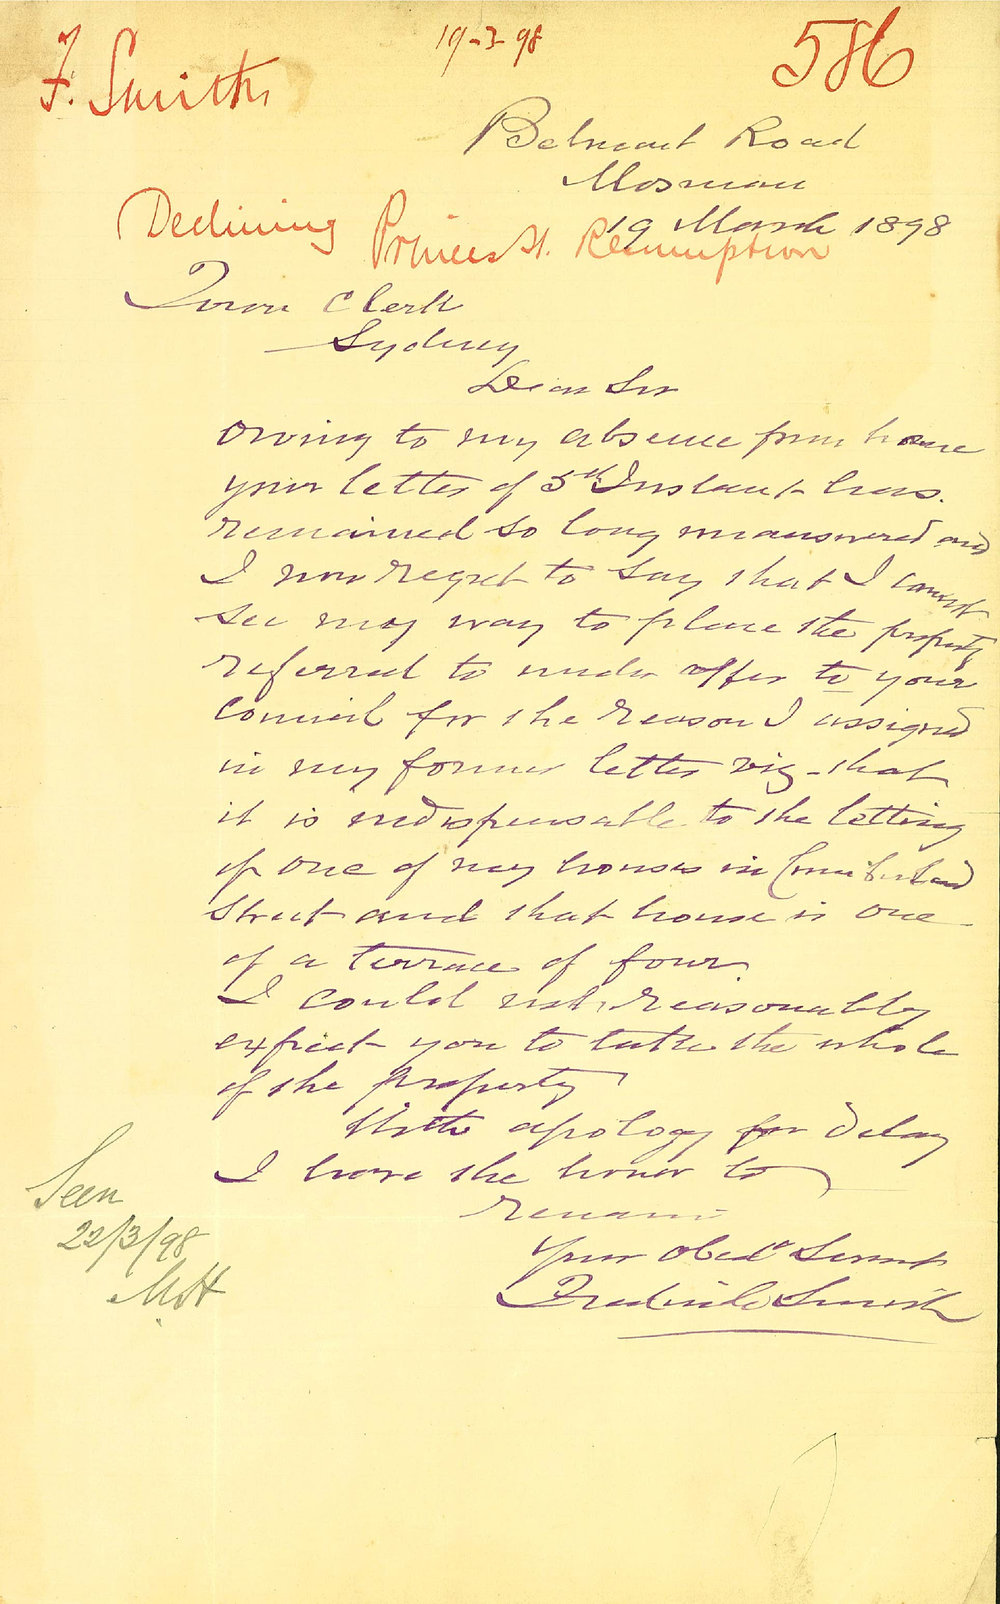 19-3-98
586
F. Smith
Belmont Road
Mosman
19 March 1898
Declining Princes St. Resumption
Town Clerk
Sydney
Dear Sir
Owing to my absence from home
your letter of 5th Instant has
remained so long unanswered and
I now regret to say that I cannot
see my way to place the property
referred to under offer to your
Council for the reason I assigned
in my former letter viz - that
it is indispensable to the letting
of one of my houses in Cumberland
Street and that house is one
of a terrace of four.
I could not reasonably
expect you to take the whole
of the property
With apology for delay
I have the honor to
remain
Your Obedt Servnt
Fredrick Smith
Seen
22/3/98